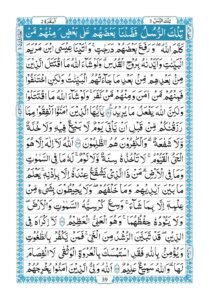 البقرة ٢
تلك الرسل ٣
تِلْكَ الرُّسُلُ فَضَّلْنَا بَعْضَهُمْ عَلٰى بَعْضٍ ۘ مِنْهُمْ مَّنْ
كَلَّمَ اللّٰهُ وَرَفَعَ بَعْضَهُمْ دَرَجٰتٍ ؕ وَاٰتَيْنَا عِيْسَى ابْنَ مَرْيَمَ
الْبَيِّنٰتِ وَاَيَّدْنٰهُ بِرُوْحِ الْقُدُسِ ؕ وَلَوْ شَآءَ اللّٰهُ مَا اقْتَتَلَ الَّذِيْنَ
مِنْۢ بَعْدِهِمْ مِّنْۢ بَعْدِ مَا جَآءَتْهُمُ الْبَيِّنٰتُ وَلٰكِنِ اخْتَلَفُوْا
فَمِنْهُمْ مَّنْ اٰمَنَ وَمِنْهُمْ مَّنْ كَفَرَ ؕ وَلَوْ شَآءَ اللّٰهُ مَا اقْتَتَلُوْا
وَلٰكِنَّ اللّٰهَ يَفْعَلُ مَا يُرِيْدُ يٰۤاَيُّهَا الَّذِيْنَ اٰمَنُوْۤا اَنْفِقُوْا مِمَّا
رَزَقْنٰكُمْ مِّنْ قَبْلِ اَنْ يَّاْتِيَ يَوْمٌ لَّا بَيْعٌ فِيْهِ وَلَا خُلَّةٌ
وَّلَا شَفَاعَةٌ ؕ وَالْكٰفِرُوْنَ هُمُ الظّٰلِمُوْنَ اَللّٰهُ لَاۤ اِلٰهَ اِلَّا هُوَ ۚ
اَلْحَيُّ الْقَيُّوْمُ ۚ لَا تَاْخُذُهٗ سِنَةٌ وَّلَا نَوْمٌ ؕ لَهٗ مَا فِي السَّمٰوٰتِ
وَمَا فِي الْاَرْضِ ؕ مَنْ ذَا الَّذِيْ يَشْفَعُ عِنْدَهٗۤ اِلَّا بِاِذْنِهٖ ؕ يَعْلَمُ
مَا بَيْنَ اَيْدِيْهِمْ وَمَا خَلْفَهُمْ ۚ وَلَا يُحِيْطُوْنَ بِشَيْءٍ مِّنْ
عِلْمِهٖۤ اِلَّا بِمَا شَآءَ ۚ وَسِعَ كُرْسِيُّهُ السَّمٰوٰتِ وَالْاَرْضَ ۚ
وَلَا يَـُٔوْدُهٗ حِفْظُهُمَا ۚ وَهُوَ الْعَلِيُّ الْعَظِيْمُ لَاۤ اِكْرَاهَ فِي
الدِّيْنِ ۙ قَدْ تَّبَيَّنَ الرُّشْدُ مِنَ الْغَيِّ ۚ فَمَنْ يَّكْفُرْ بِالطَّاغُوْتِ
وَيُؤْمِنْۢ بِاللّٰهِ فَقَدِ اسْتَمْسَكَ بِالْعُرْوَةِ الْوُثْقٰى ۗ لَا انْفِصَامَ
لَهَا ؕ وَاللّٰهُ سَمِيْعٌ عَلِيْمٌ اَللّٰهُ وَلِيُّ الَّذِيْنَ اٰمَنُوْا ۙ يُخْرِجُهُمْ
39